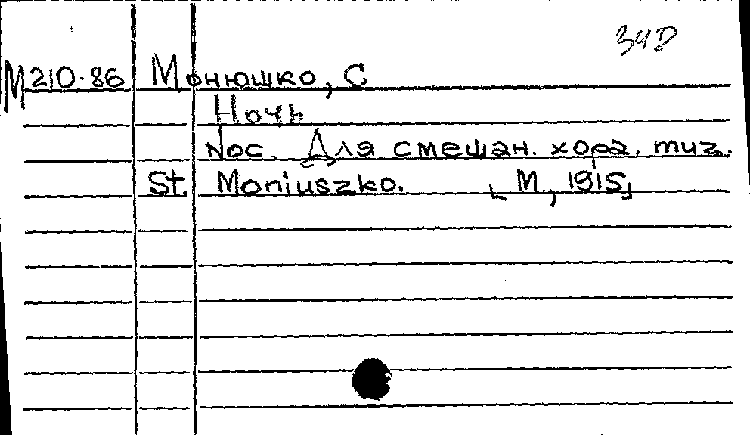 34D
M210.86 Монюшко, С
Ночь
Noc. Для смешан. хора. muz.
St. Moniuszko. [М, 1915]